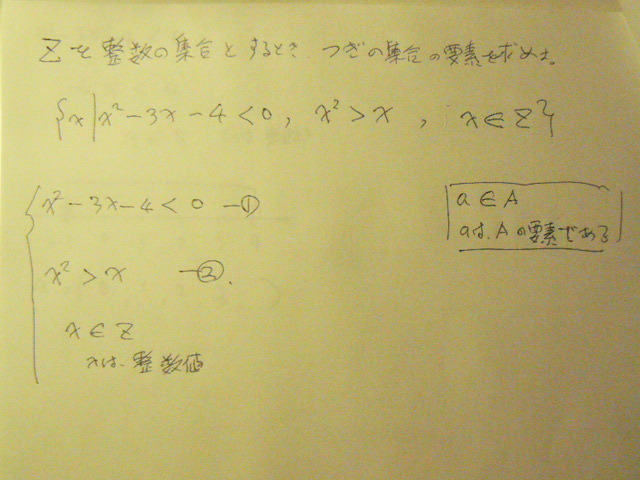 Zを整数の集合とするとき つぎの集合の要素を求めよ。
{x|x²-3x-4<0, x²>x , x∈Z}
x²-3x-4<0 -①
a∈A
aは、Aの要素である
x²>x -②.
x∈Z
xは、整数値